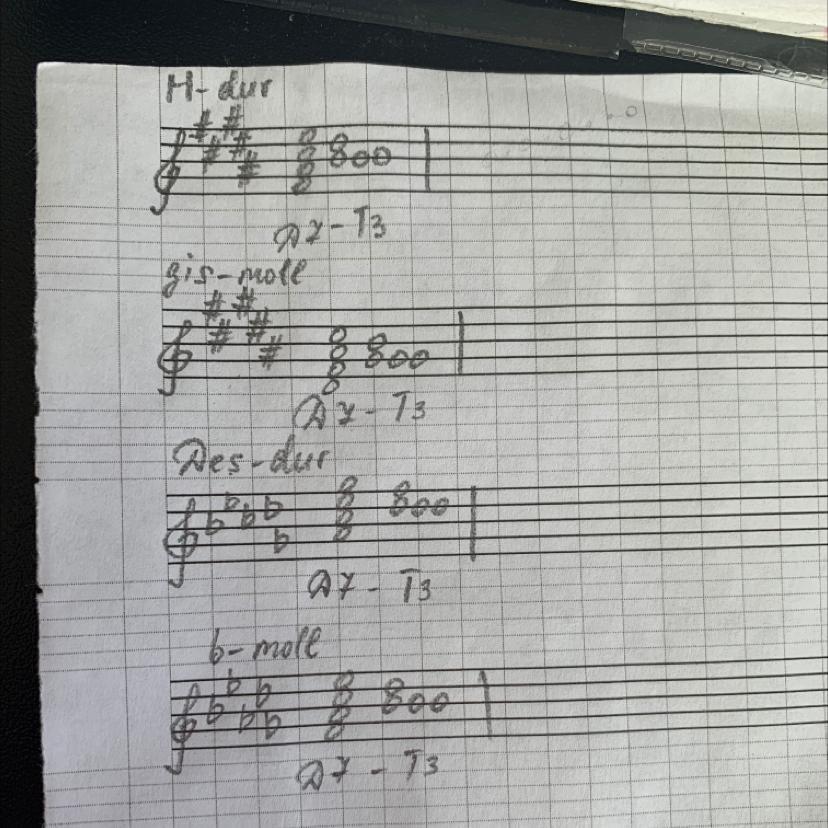 H-dur
D7-T3
gis-moll
D7-T3
Des-dur
D7-T3
b-moll
D7-T3